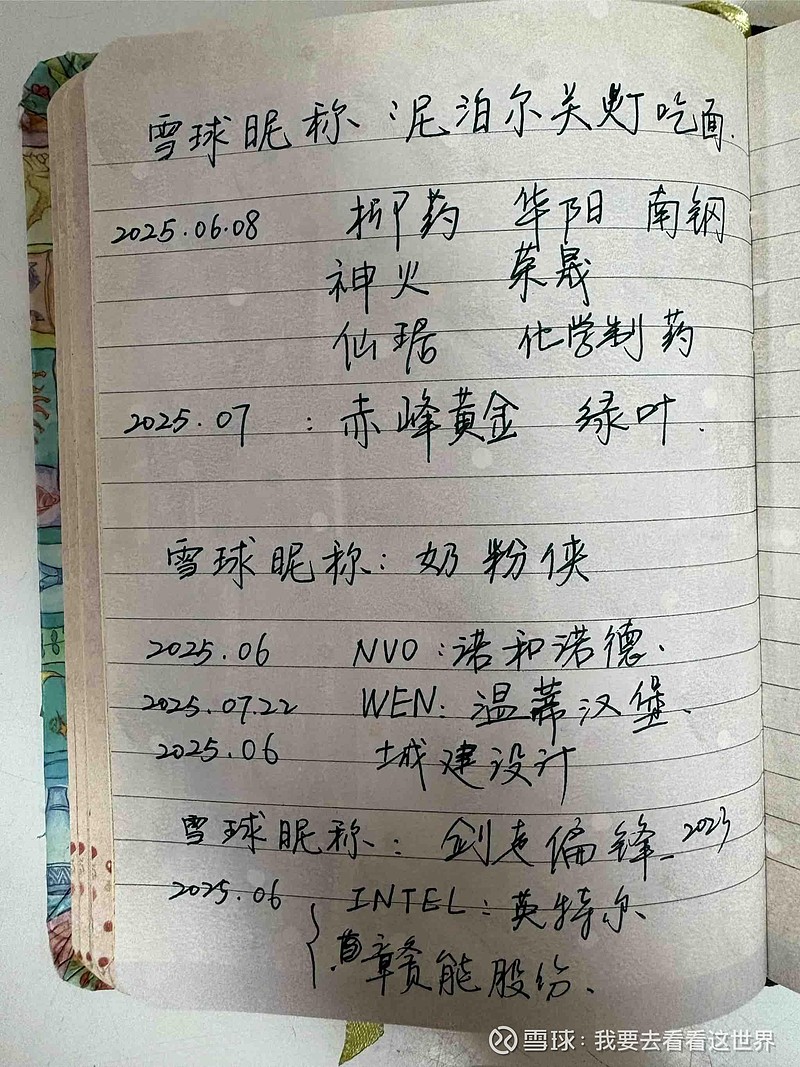 雪球昵称:尼泊尔关灯吃面.
2025.06.08 柳药 华阳 南钢
神火 荣晟
仙琚 化学制药
2025.07 : 赤峰黄金 绿叶.
雪球昵称: 奶粉侠
2025.06 NVO:诺和诺德.
2025.07.22 WEN: 温蒂汉堡.
2025.06 城建设计
雪球昵称: 剑走偏锋_2023
2025.06 INTEL: 英特尔
赣能股份.
雪球:我要去看看这世界